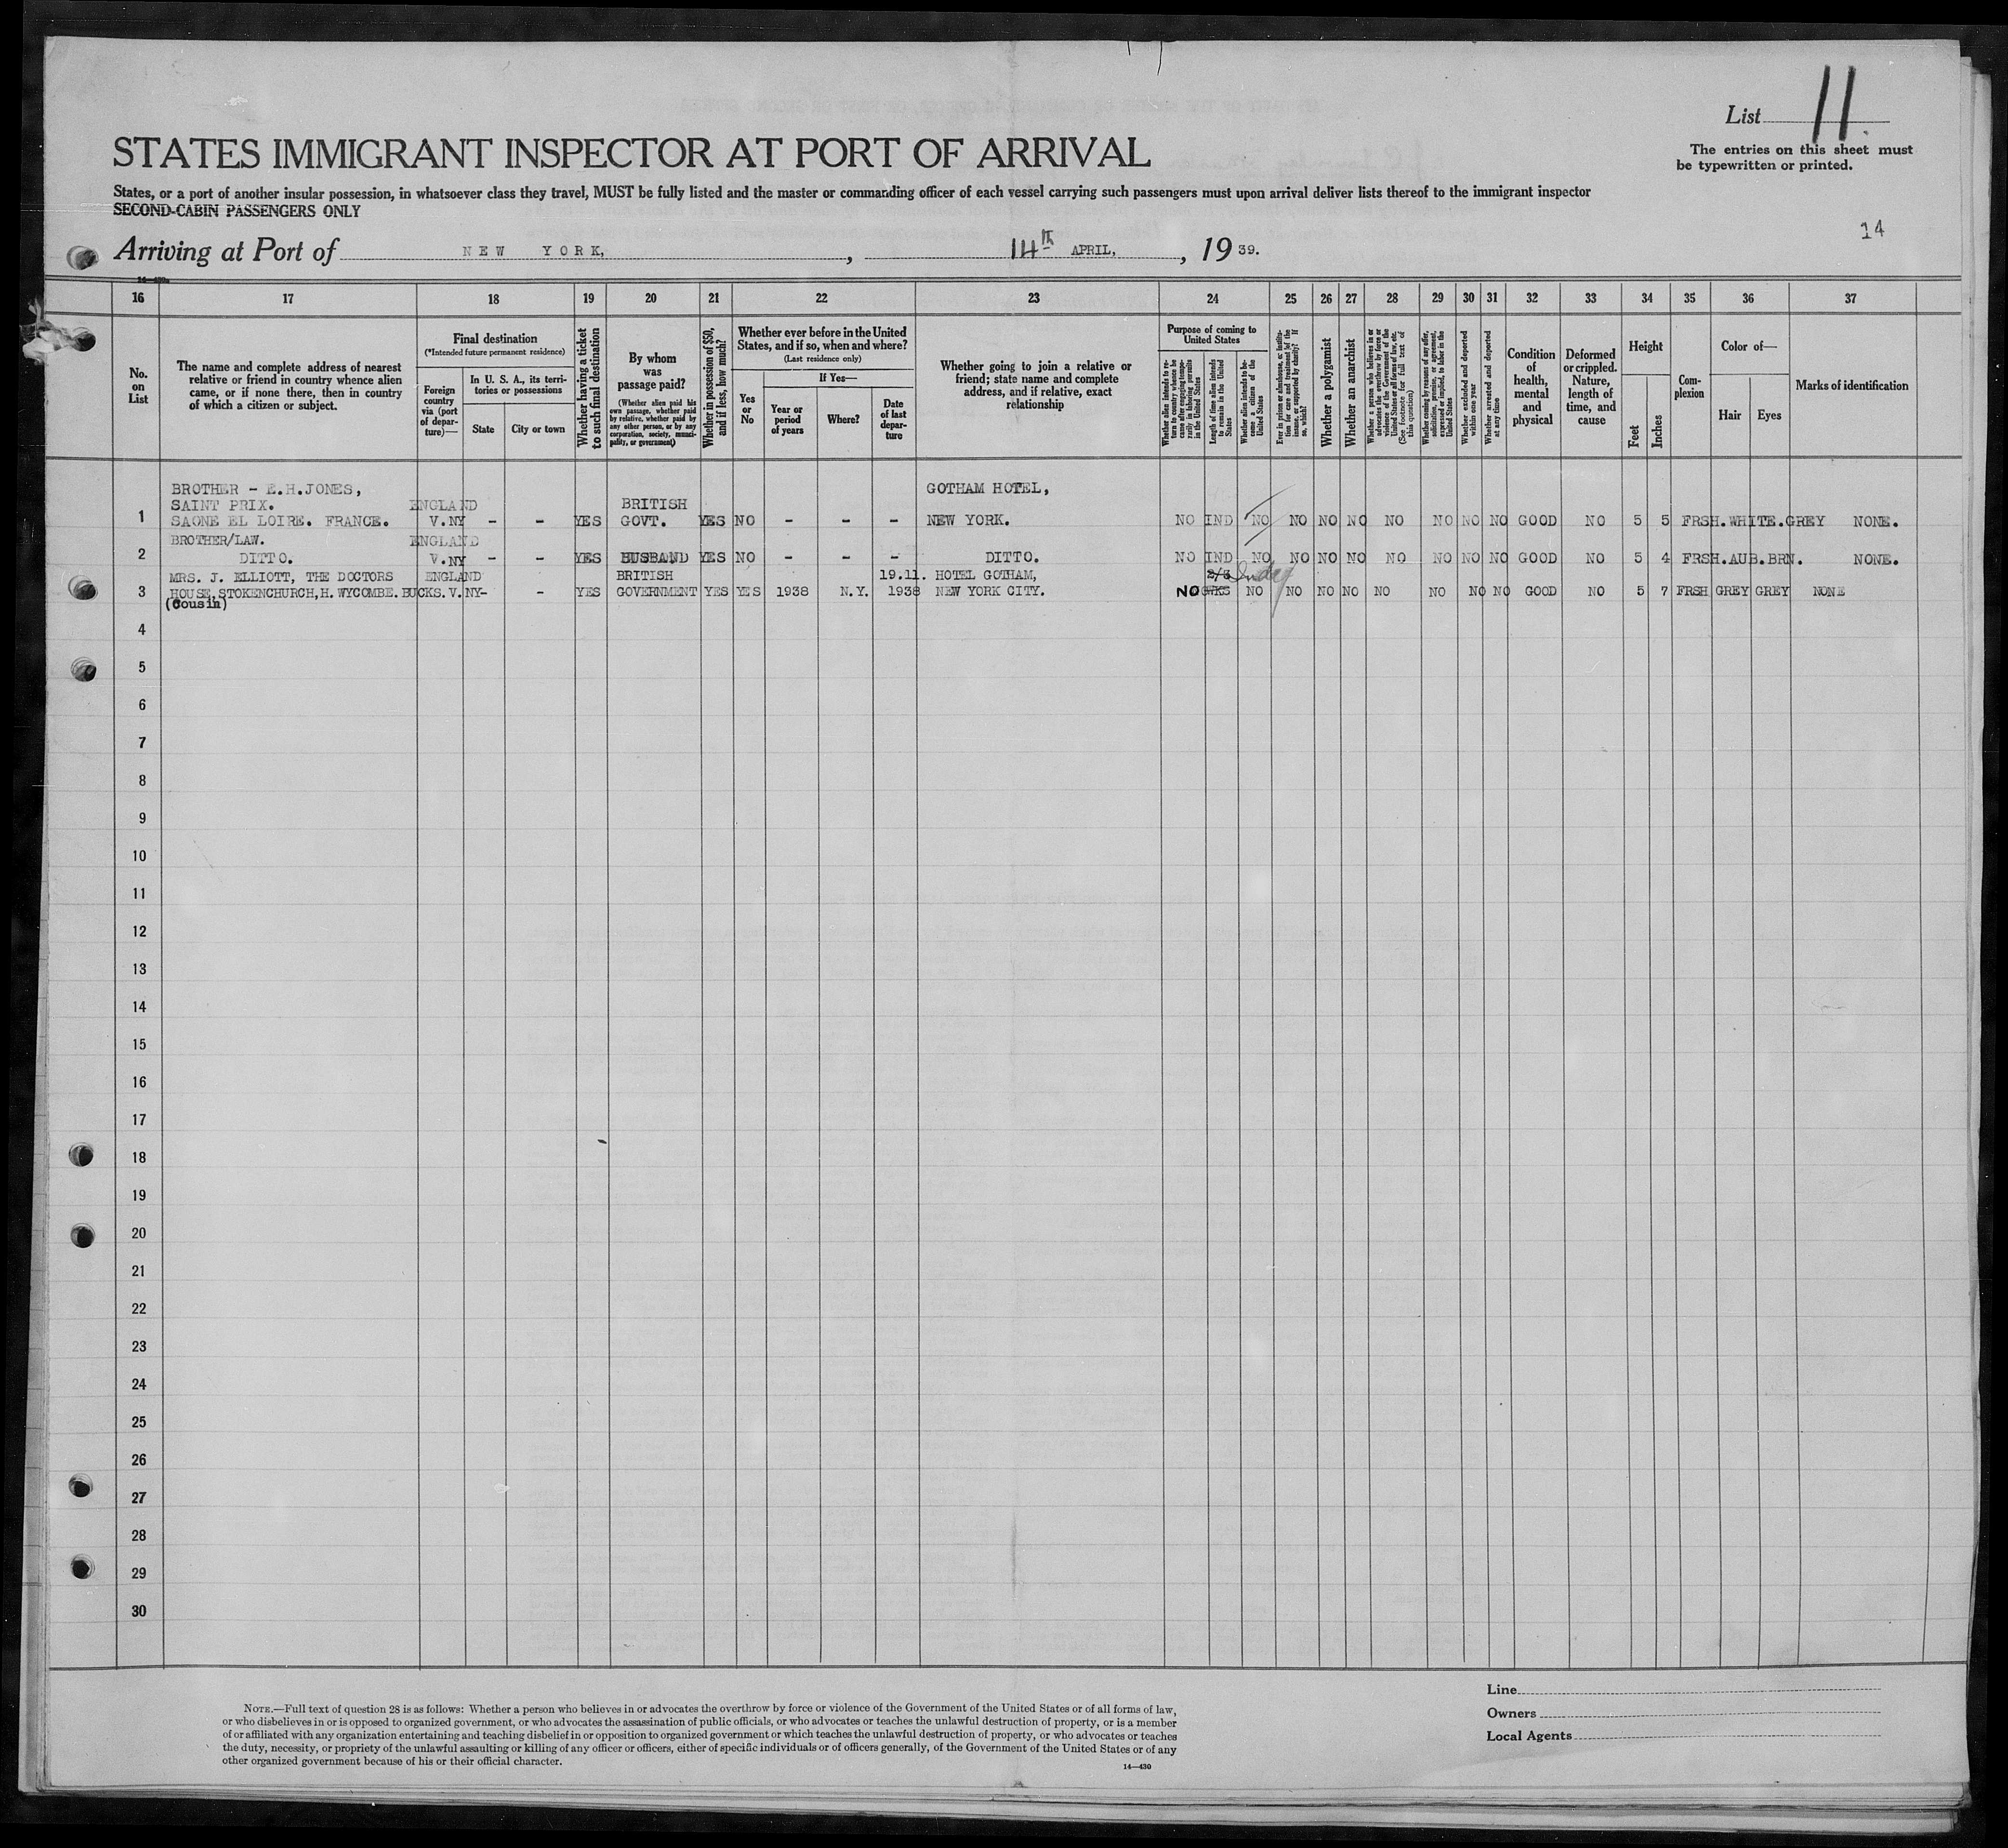 List 11
STATES IMMIGRANT INSPECTOR AT PORT OF ARRIVAL
The entries on this sheet must
be typewritten or printed.
States, or a port of another insular possession, in whatsoever class they travel, MUST be fully listed and the master or commanding officer of each vessel carrying such passengers must upon arrival deliver lists thereof to the immigrant inspector
SECOND-CABIN PASSENGERS ONLY
14
Arriving at Port of NEW YORK, , 14th APRIL, , 19 39.
16 17 18 19 20 21 22 23 24 25 26 27 28 29 30 31 32 33 34 35 36 37
No. on List
The name and complete address of nearest relative or friend in country whence alien came, or if none there, then in country of which a citizen or subject.
Final destination
(*Intended future permanent residence)
Foreign country via (port of departure)—
In U. S. A., its territories or possessions
State
City or town
Whether having a ticket to such final destination
By whom was passage paid?
(Whether alien paid his own passage, whether paid by relative, whether paid by any other person, or by any corporation, society, municipality, or government)
Whether in possession of $50, and if less, how much?
Whether ever before in the United States, and if so, when and where?
(Last residence only)
Yes or No
If Yes—
Year or period of years
Where?
Date of last departure
Whether going to join a relative or friend; state name and complete address, and if relative, exact relationship
Purpose of coming to United States
Whether alien intends to return to country whence he came after engaging temporarily in laboring pursuits in the United States
Length of time alien intends to remain in the United States
Whether alien intends to become a citizen of the United States
Ever in prison or almshouse, or institution for care and treatment of the insane, or supported by charity? If so, which?
Whether a polygamist
Whether an anarchist
Whether a person who believes in or advocates the overthrow by force or violence of the Government of the United States or all forms of law, etc. (See footnote for full text of this question)
Whether coming by reason of any offer, solicitation, promise, or agreement, expressed or implied, to labor in the United States
Whether excluded and deported within one year
Whether arrested and deported at any time
Condition of health, mental and physical
Deformed or crippled. Nature, length of time, and cause
Height
Feet
Inches
Complexion
Color of—
Hair
Eyes
Marks of identification
BROTHER - E.H.JONES, GOTHAM HOTEL,
SAINT PRIX. ENGLAND BRITISH
1 SAONE EL LOIRE. FRANCE. V.NY - - YES GOVT. YES NO - - - NEW YORK. NO IND NO NO NO NO NO NO NO NO GOOD NO 5 5 FRSH. WHITE. GREY NONE.
BROTHER/LAW. ENGLAND
2 DITTO. V.NY - - YES HUSBAND YES NO - - - DITTO. NO IND NO NO NO NO NO NO NO NO GOOD NO 5 4 FRSH. AUB. BRN. NONE.
MRS. J. ELLIOTT, THE DOCTORS ENGLAND BRITISH 19.11. HOTEL GOTHAM, 2/3
3 HOUSE, STOKENCHURCH, H. WYCOMBE. BUCKS. V. NY- - YES GOVERNMENT YES YES 1938 N.Y. 1938 NEW YORK CITY. NO WKS NO NO NO NO NO NO NO NO GOOD NO 5 7 FRSH GREY GREY NONE
(Cousin)
4
5
6
7
8
9
10
11
12
13
14
15
16
17
18
19
20
21
22
23
24
25
26
27
28
29
30
NOTE.—Full text of question 28 is as follows: Whether a person who believes in or advocates the overthrow by force or violence of the Government of the United States or of all forms of law,
or who disbelieves in or is opposed to organized government, or who advocates the assassination of public officials, or who advocates or teaches the unlawful destruction of property, or is a member
of or affiliated with any organization entertaining and teaching disbelief in or opposition to organized government or which teaches the unlawful destruction of property, or who advocates or teaches
the duty, necessity, or propriety of the unlawful assaulting or killing of any officer or officers, either of specific individuals or of officers generally, of the Government of the United States or of any
other organized government because of his or their official character.
14—430
Line
Owners
Local Agents